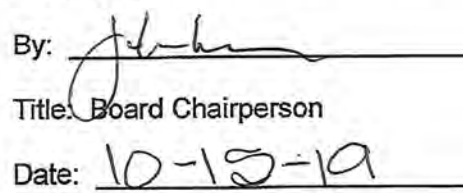 By:
Title: Board Chairperson
Date: 10-15-19